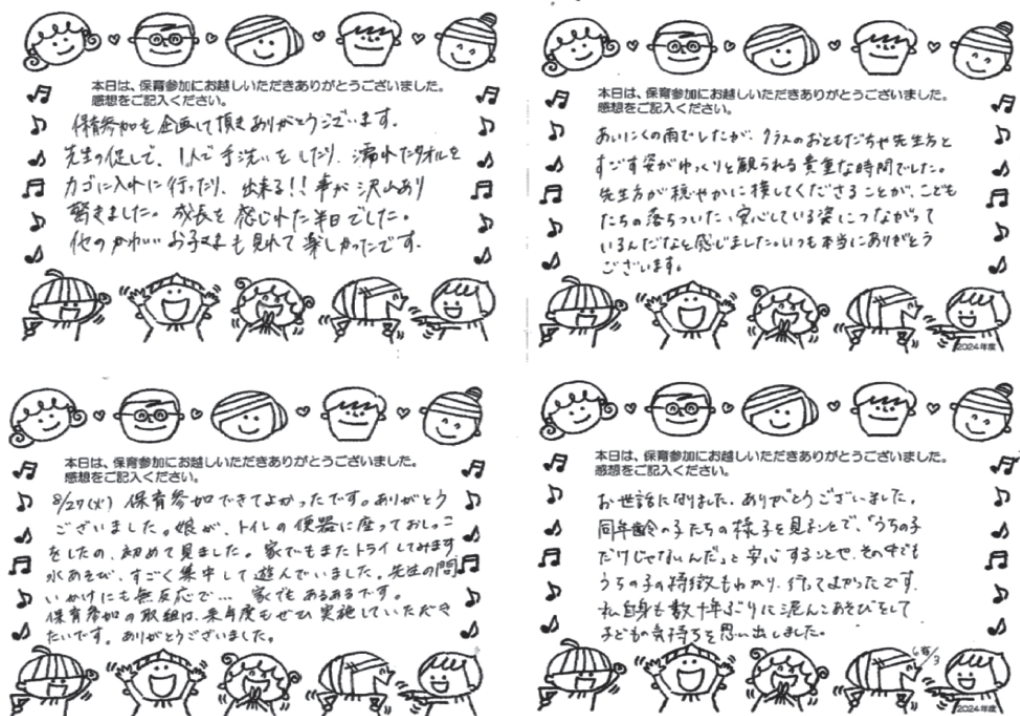 本日は、保育参加にお越しいただきありがとうございました。
感想をご記入ください。
保育参加を企画して頂きありがとうございます。
先生の促しで、1人で手洗いをしたり、濡れたタオルを
カゴに入れに行ったり、出来る!!事が沢山あり
驚きました。成長を感じれた半日でした。
他のかわいいお子さまも見れて楽しかったです。
本日は、保育参加にお越しいただきありがとうございました。
感想をご記入ください。
あいにくの雨でしたが、クラスのおともだちや先生方と
すごす姿がゆっくりと観られる貴重な時間でした。
先生方が穏やかに接してくださることが、こども
たちの落ちついた、安心している姿につながって
いるんだなと感じました。いつも本当にありがとう
ございます。
2024年度
本日は、保育参加にお越しいただきありがとうございました。
感想をご記入ください。
8/27(火) 保育参加できてよかったです。ありがとう
ございました。娘が、トイレの便器に座っておしっこ
をしたの、初めて見ました。家でもまたトライしてみます
水あそび、すごく集中して遊んでいました。先生の問
いかけにも無反応で… 家でもあるあるです。
保育参加の取組は、来年度もぜひ実施していただき
たいです。ありがとうございました。
本日は、保育参加にお越しいただきありがとうございました。
感想をご記入ください。
お世話になりました。ありがとうございました。
同年齢の子たちの様子を見ることで、「うちの子
だけじゃないんだ」と安心することや、その中でも
うちの子の特徴もわかり、行ってよかったです。
私自身も数十年ぶりに泥んこあそびをして
子どもの気持ちを思い出しました。
2024年度